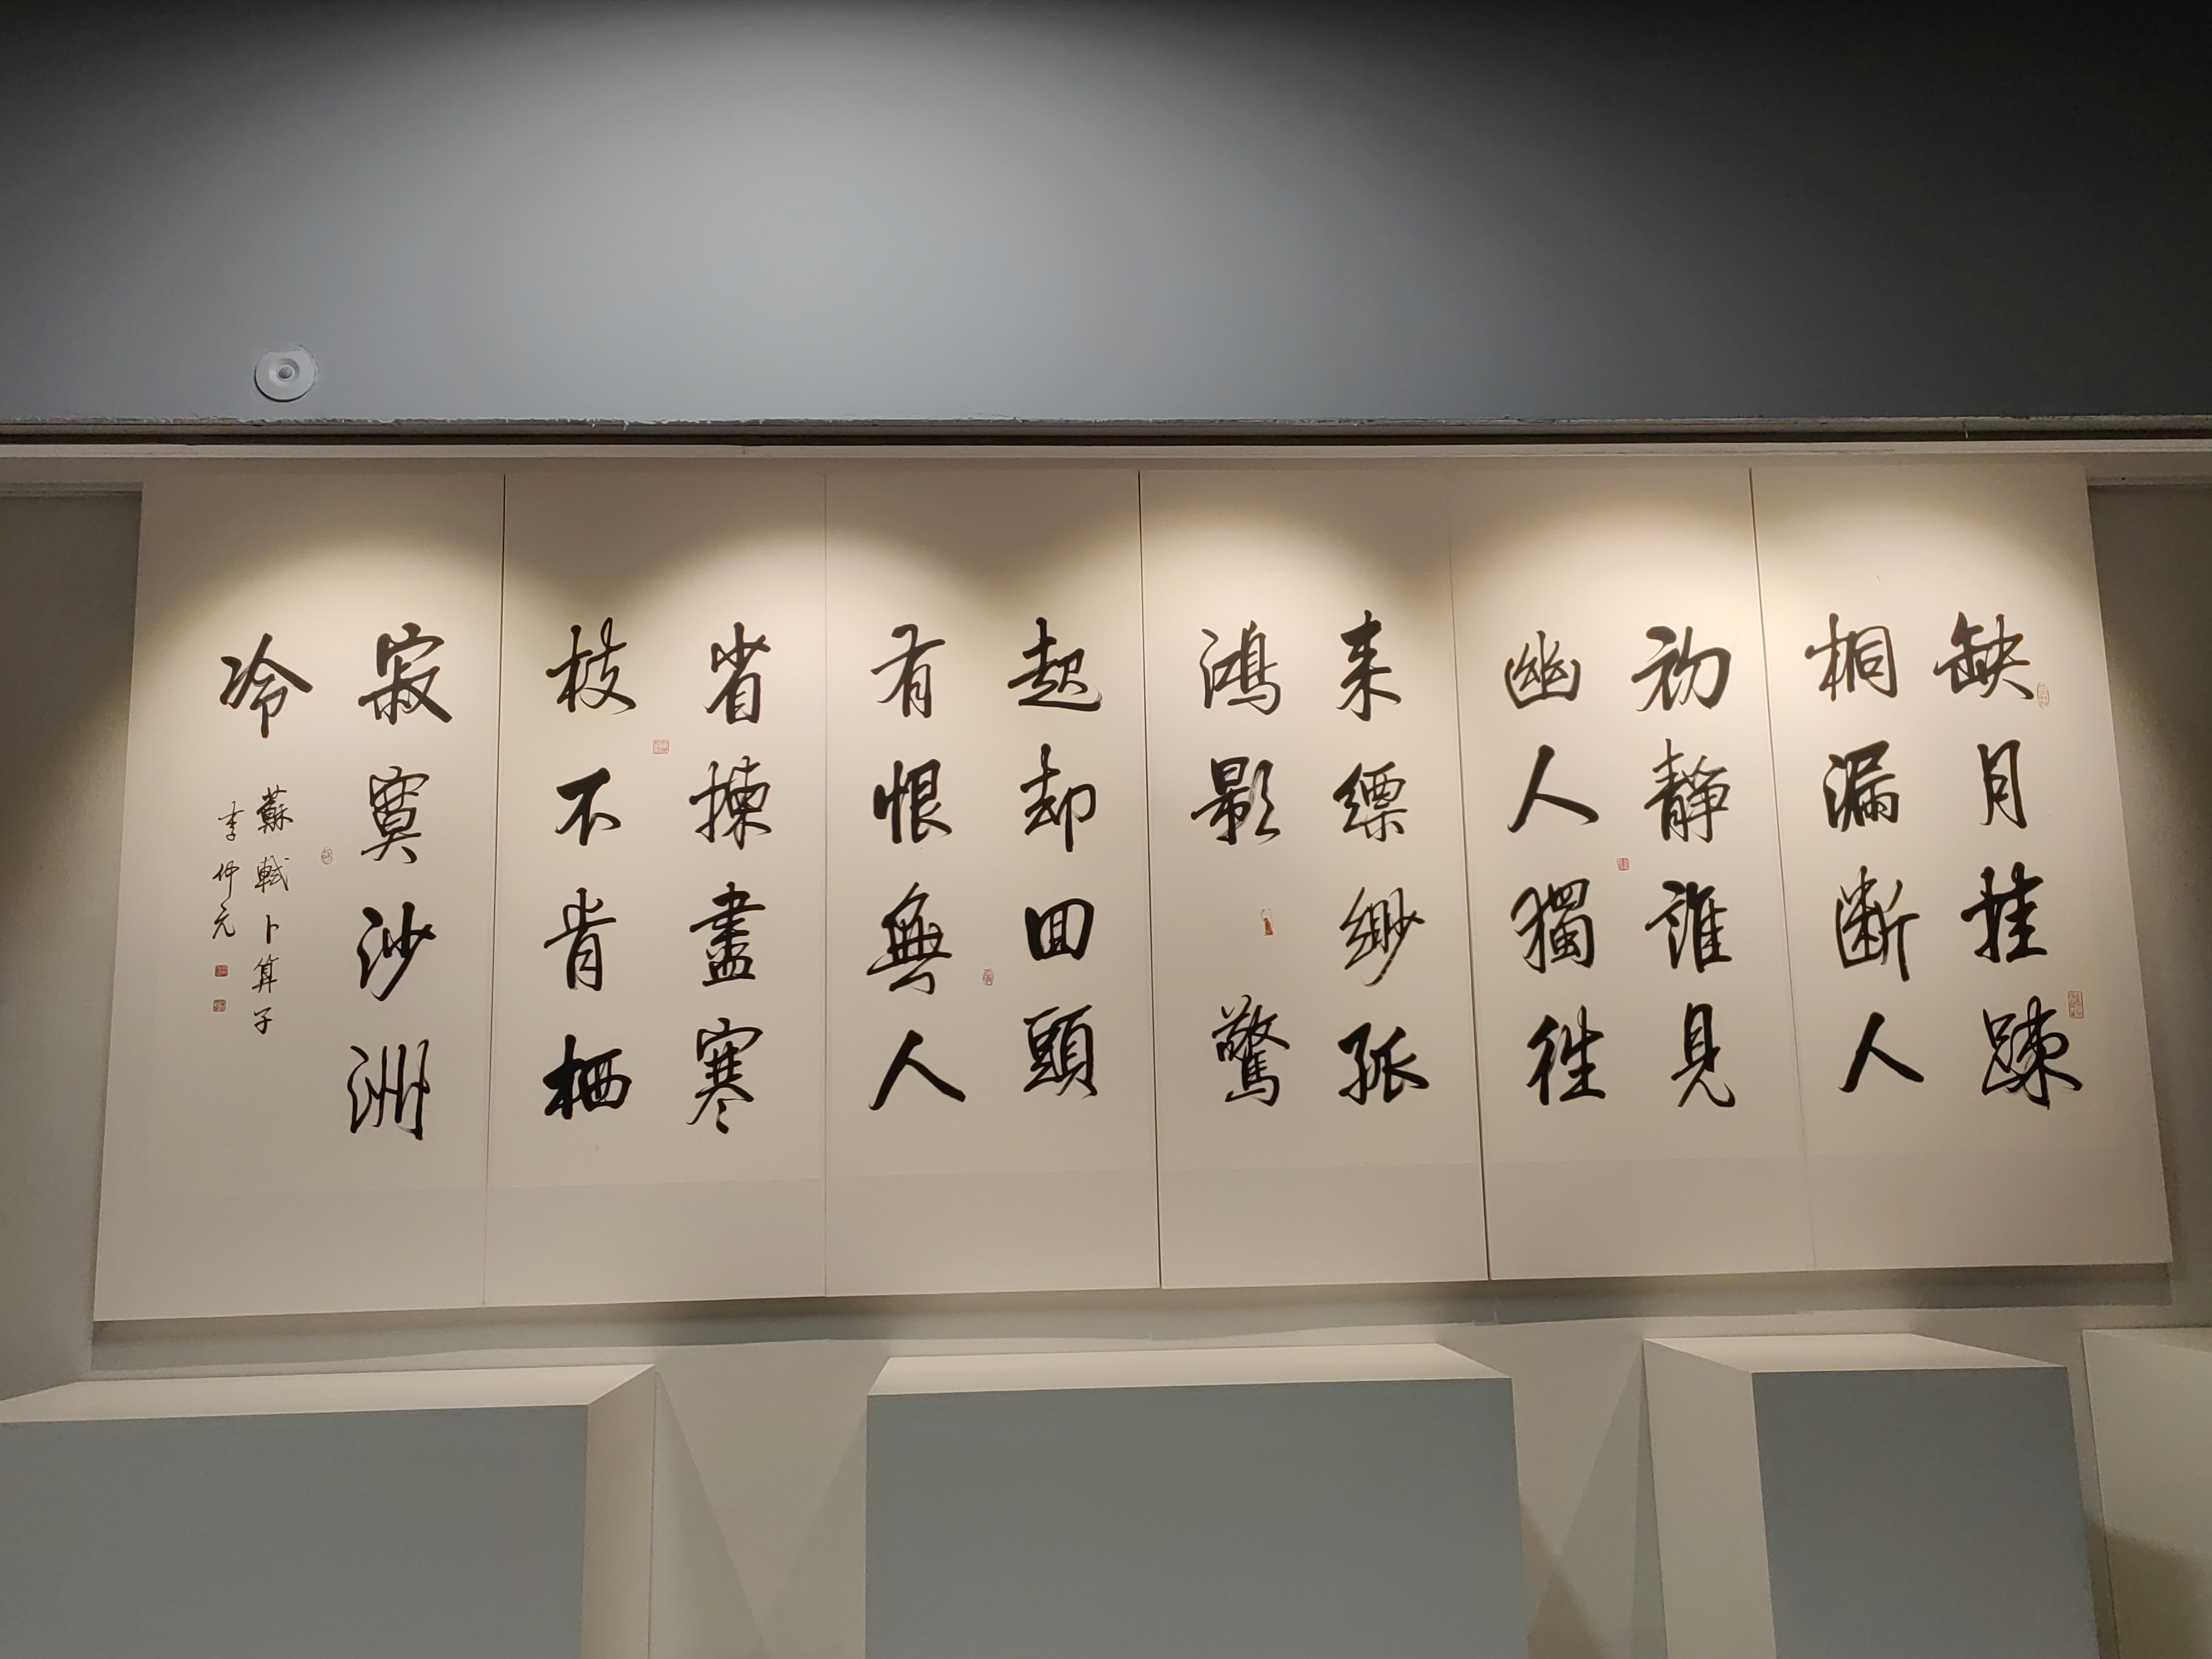 缺月挂踈
桐漏断人
初静誰見
幽人獨往
来縹緲孤
鴻影
驚
起却回頭
有恨無人
省揀盡寒
枝不肯栖
寂寞沙洲
冷
蘇軾卜算子
李仲元